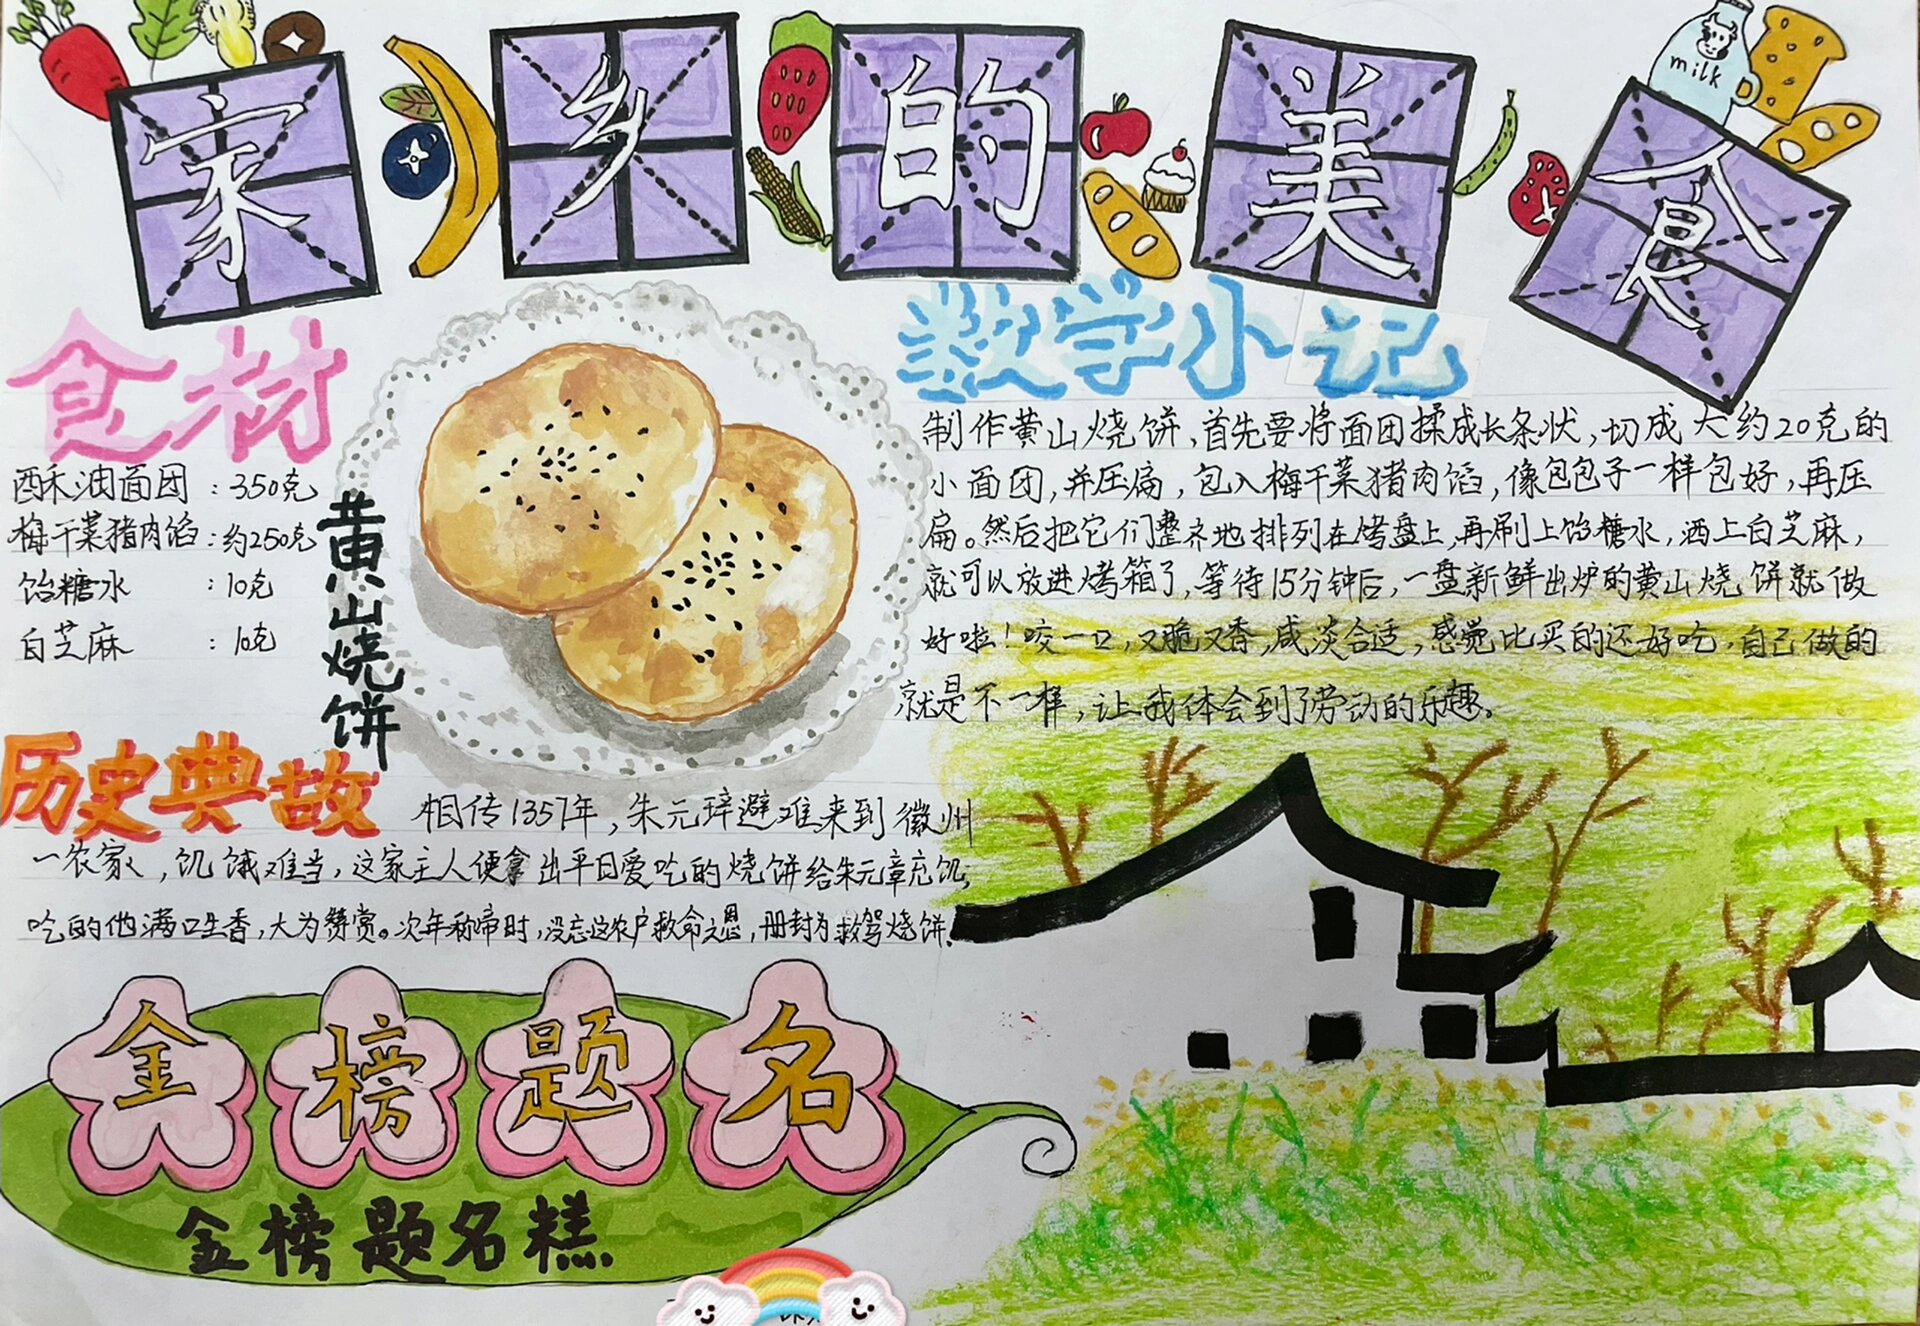 家乡的美食
milk
食材
酥油面团:350克
梅干菜猪肉馅:约250克
饴糖水:10克
白芝麻:10克
黄山烧饼
数学小记
制作黄山烧饼,首先要将面团揉成长条状,切成大约20克的
小面团,并压扁,包入梅干菜猪肉馅,像包包子一样包好,再压
扁。然后把它们整齐地排列在烤盘上,再刷上饴糖水,洒上白芝麻,
就可以放进烤箱了,等待15分钟后,一盘新鲜出炉的黄山烧饼就做
好啦!咬一口,又脆又香,咸淡合适,感觉比买的还好吃,自己做的
就是不一样,让我体会到了劳动的乐趣。
历史典故
相传1357年,朱元璋避难来到徽州
一农家,饥饿难当,这家主人便拿出平日爱吃的烧饼给朱元章充饥,
吃的他满口生香,大为赞赏。次年称帝时,没忘这农户救命之恩,册封为救驾烧饼.
金榜题名
金榜题名糕